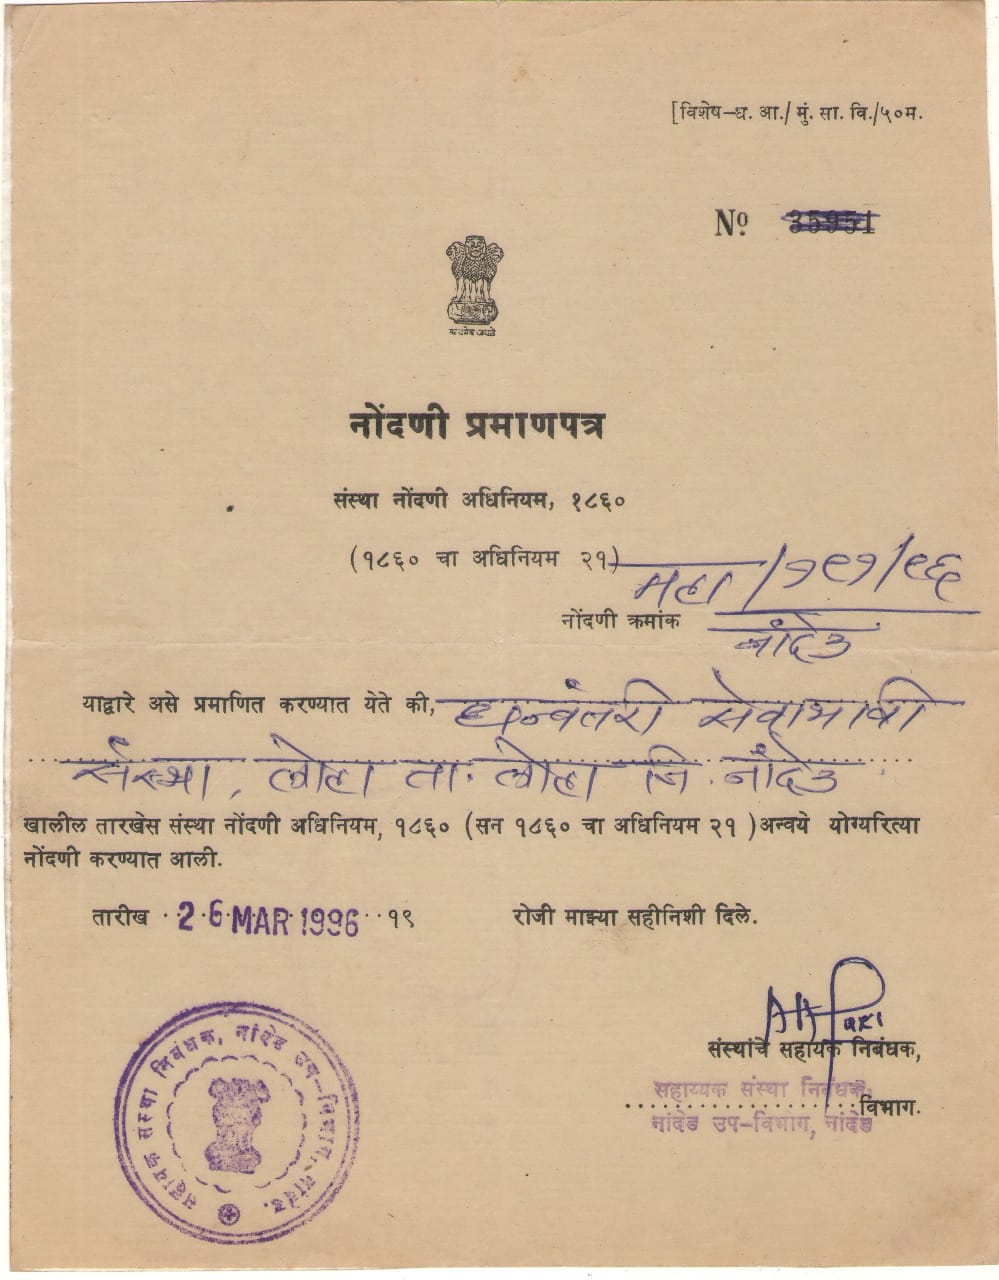 [विशेष—ध. आ./ मुं. सा. वि./५०म.
Nº 35951
सत्यमेव जयते
नोंदणी प्रमाणपत्र
संस्था नोंदणी अधिनियम, १८६०
(१८६० चा अधिनियम २१)
नोंदणी क्रमांक महा/१९१/९६
नांदेड
याद्वारे असे प्रमाणित करण्यात येते की, धन्वंतरी सेवाभावी
संस्था, लोहा ता. लोहा जि. नांदेड
खालील तारखेस संस्था नोंदणी अधिनियम, १८६० (सन १८६० चा अधिनियम २१ )अन्वये योग्यरित्या
नोंदणी करण्यात आली.
तारीख 26 MAR 1996 १९ रोजी माझ्या सहीनिशी दिले.
संस्थांचे सहायक निबंधक,
सहाय्यक संस्था निबंधक,
विभाग.
नांदेड उप-विभाग, नांदेड
सहायक संस्था निबंधक, नांदेड उप-विभाग, नांदेड.